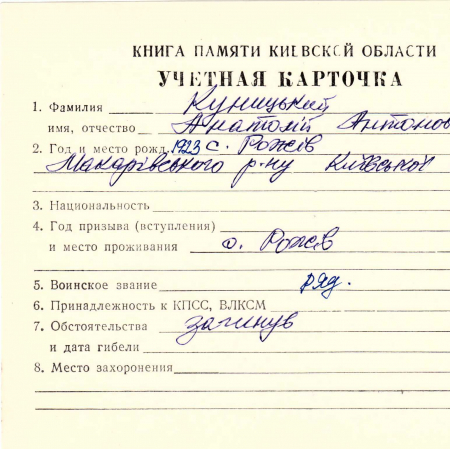 КНИГА ПАМЯТИ КИЕВСКОЙ ОБЛАСТИ
УЧЕТНАЯ КАРТОЧКА
1. Фамилия Куницький
имя, отчество Анатолій Антонов
2. Год и место рожд. 1923 с. Рожів
Макарівського р-ну Київської
3. Национальность
4. Год призыва (вступления)
и место проживания с. Рожів
5. Воинское звание ряд.
6. Принадлежность к КПСС, ВЛКСМ
7. Обстоятельства загинув
и дата гибели
8. Место захоронения